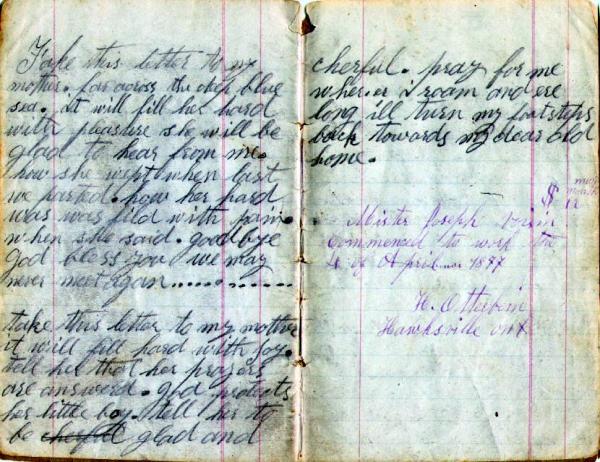 Take this letter to my
mother. far across the deep blue
sea. it will fill her hard
with pleasure she will be
glad to hear from me.
how she wept when last
we parted. how her hard
was was fild with pain
when she said. goodbye
god bless you we may
never meet again............
take this letter to my mother
it will fill hard with joy.
tell her that her prayers
are answerd. god protects
her little boy. tell her to
be cherful glad and
cherful. pray for me
wher.er I roam and ere
long ill turn my footsteps
back towards my dear old
home.
$
12
Mister Joseph
Commenced to work the
4 of April 1877
H. Otterbein
Hawksville ont